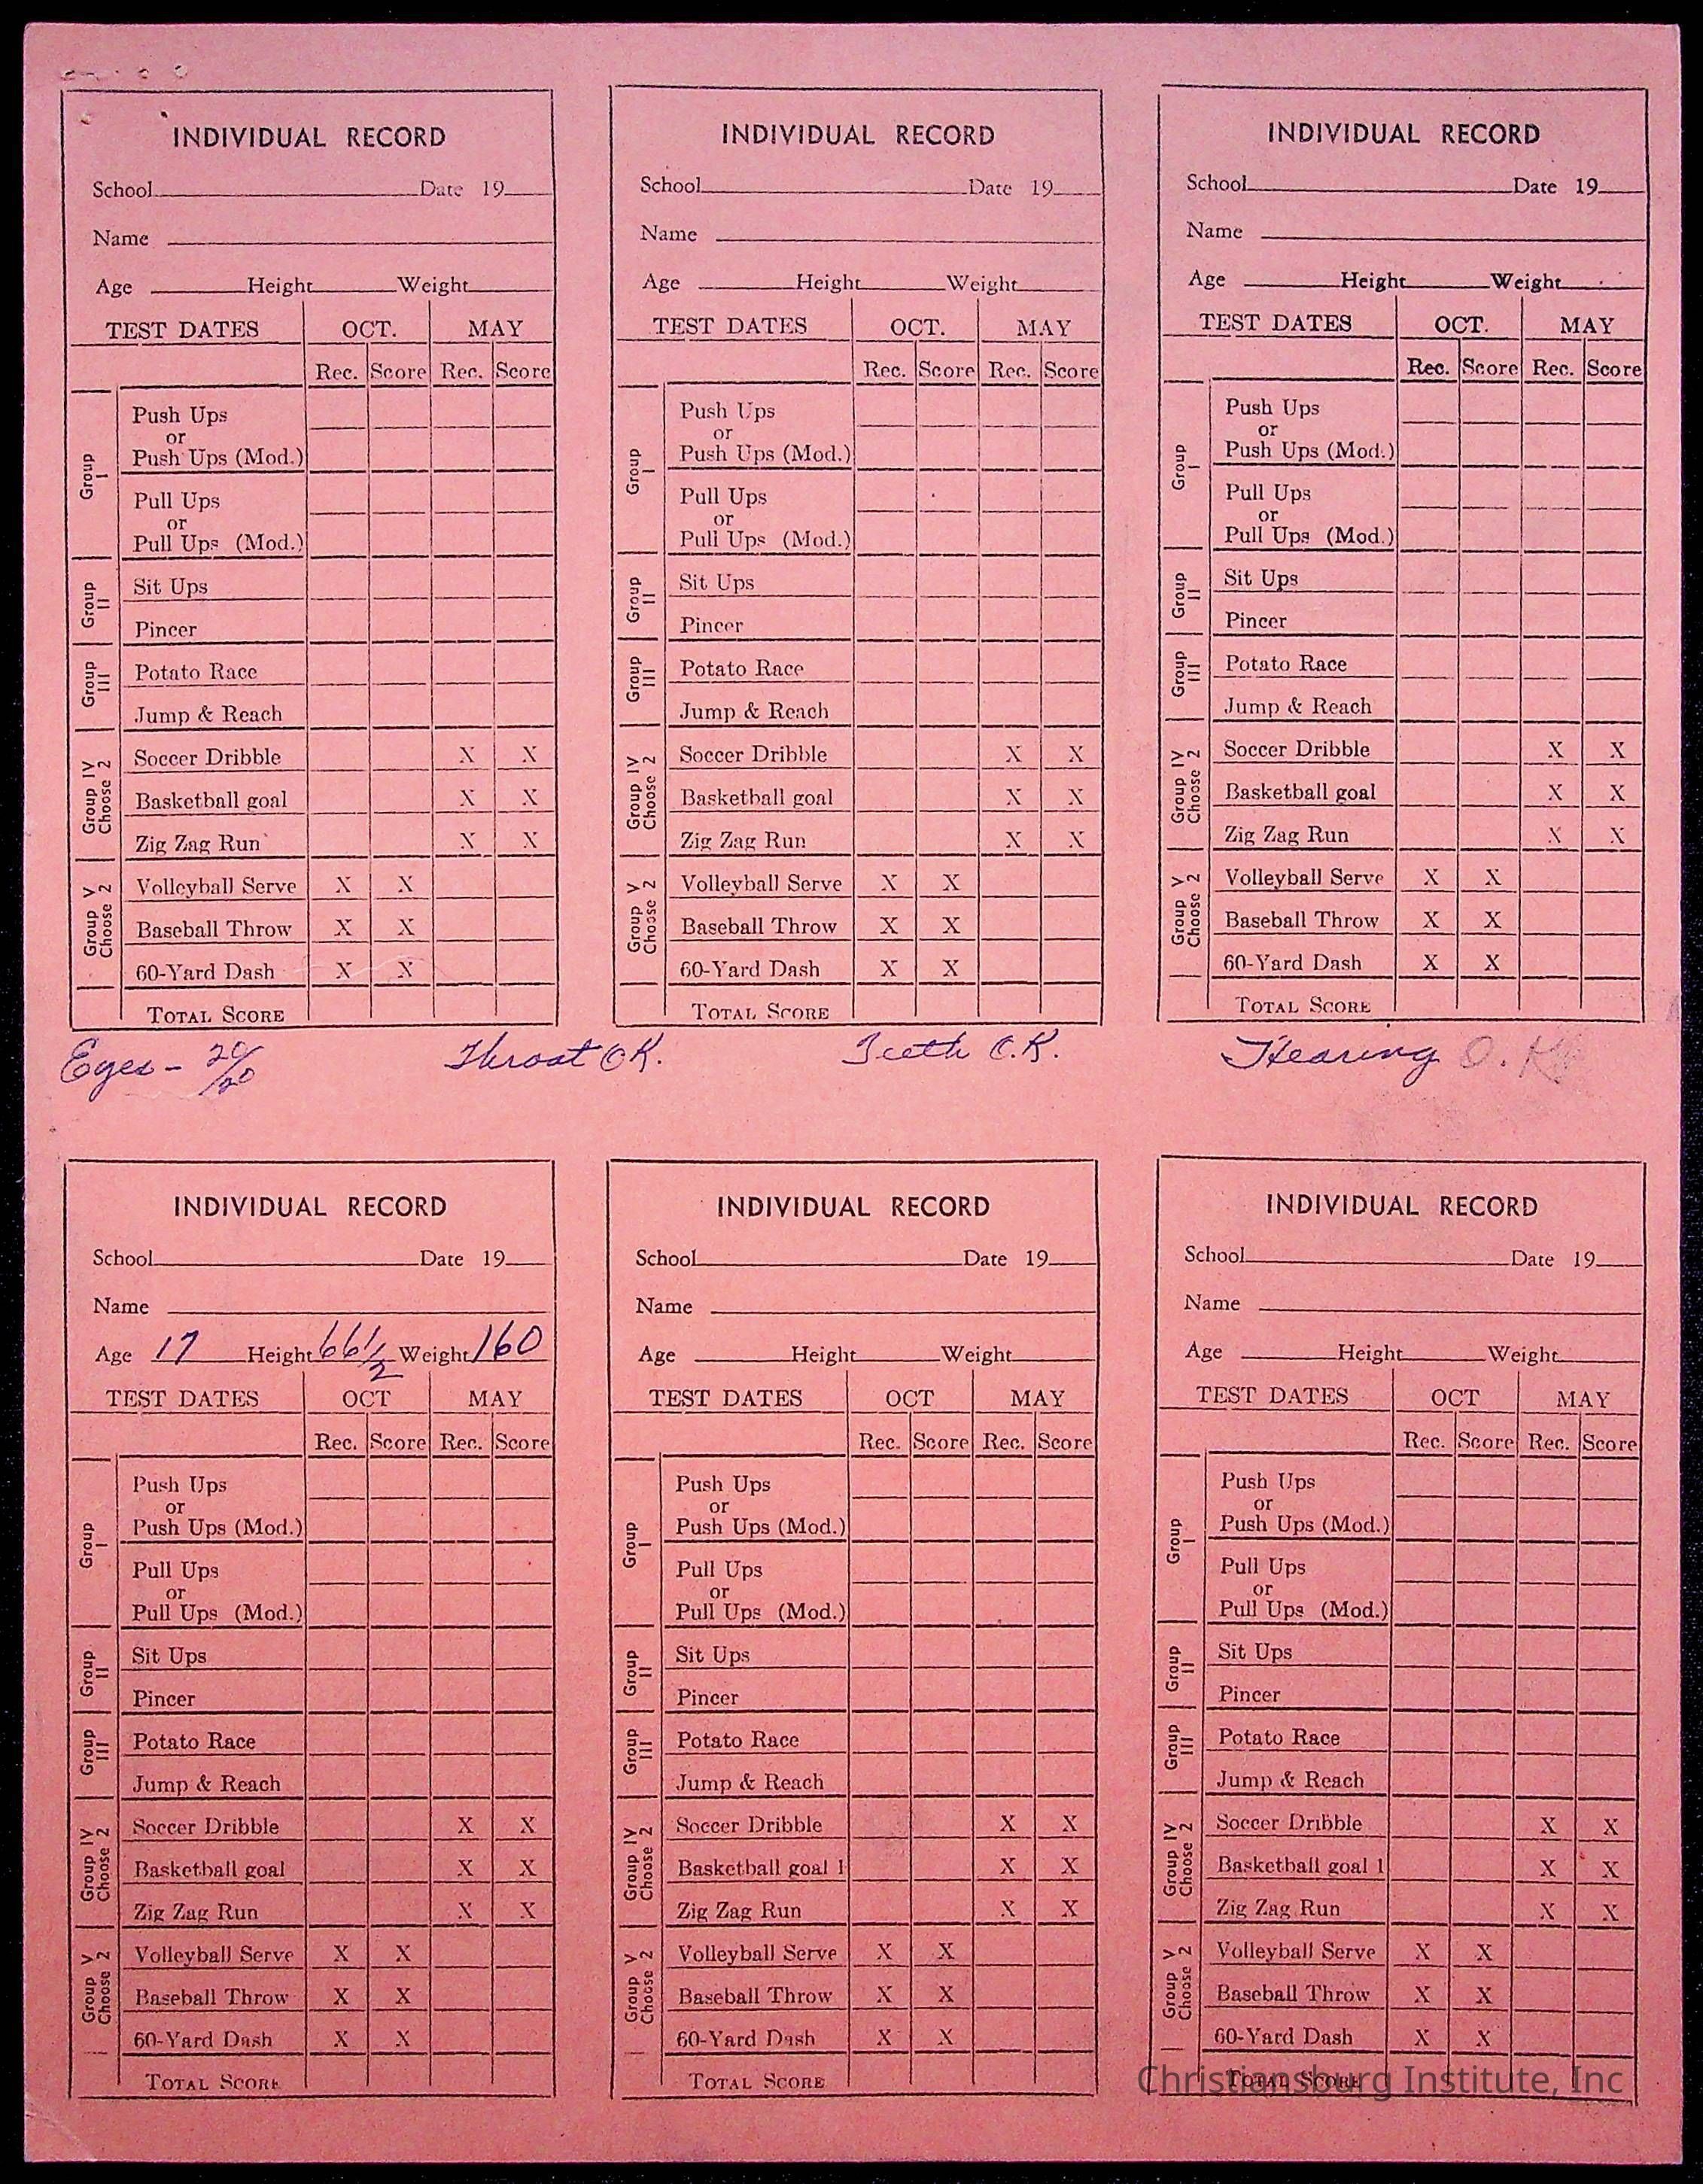 INDIVIDUAL RECORD
School Date 19
Name
Age Height Weight
TEST DATES OCT. MAY
Rec. Score Rec. Score
Group I
Push Ups
or
Push Ups (Mod.)
Pull Ups
or
Pull Ups (Mod.)
Group II
Sit Ups
Pincer
Group III
Potato Race
Jump & Reach
Group IV Choose 2
Soccer Dribble X X
Basketball goal X X
Zig Zag Run X X
Group V Choose 2
Volleyball Serve X X
Baseball Throw X X
60-Yard Dash X X
TOTAL SCORE
INDIVIDUAL RECORD
School Date 19
Name
Age Height Weight
TEST DATES OCT. MAY
Rec. Score Rec. Score
Group I
Push Ups
or
Push Ups (Mod.)
Pull Ups
or
Pull Ups (Mod.)
Group II
Sit Ups
Pincer
Group III
Potato Race
Jump & Reach
Group IV Choose 2
Soccer Dribble X X
Basketball goal X X
Zig Zag Run X X
Group V Choose 2
Volleyball Serve X X
Baseball Throw X X
60-Yard Dash X X
TOTAL SCORE
INDIVIDUAL RECORD
School Date 19
Name
Age Height Weight
TEST DATES OCT. MAY
Rec. Score Rec. Score
Group I
Push Ups
or
Push Ups (Mod.)
Pull Ups
or
Pull Ups (Mod.)
Group II
Sit Ups
Pincer
Group III
Potato Race
Jump & Reach
Group IV Choose 2
Soccer Dribble X X
Basketball goal X X
Zig Zag Run X X
Group V Choose 2
Volleyball Serve X X
Baseball Throw X X
60-Yard Dash X X
TOTAL SCORE
Eyes - 20/20 Throat OK. Teeth O.K. Hearing O.K.
INDIVIDUAL RECORD
School Date 19
Name
Age 17 Height 66 1/2 Weight 160
TEST DATES OCT MAY
Rec. Score Rec. Score
Group I
Push Ups
or
Push Ups (Mod.)
Pull Ups
or
Pull Ups (Mod.)
Group II
Sit Ups
Pincer
Group III
Potato Race
Jump & Reach
Group IV Choose 2
Soccer Dribble X X
Basketball goal X X
Zig Zag Run X X
Group V Choose 2
Volleyball Serve X X
Baseball Throw X X
60-Yard Dash X X
TOTAL SCORE
INDIVIDUAL RECORD
School Date 19
Name
Age Height Weight
TEST DATES OCT MAY
Rec. Score Rec. Score
Group I
Push Ups
or
Push Ups (Mod.)
Pull Ups
or
Pull Ups (Mod.)
Group II
Sit Ups
Pincer
Group III
Potato Race
Jump & Reach
Group IV Choose 2
Soccer Dribble X X
Basketball goal 1 X X
Zig Zag Run X X
Group V Choose 2
Volleyball Serve X X
Baseball Throw X X
60-Yard Dash X X
TOTAL SCORE
INDIVIDUAL RECORD
School Date 19
Name
Age Height Weight
TEST DATES OCT MAY
Rec. Score Rec. Score
Group I
Push Ups
or
Push Ups (Mod.)
Pull Ups
or
Pull Ups (Mod.)
Group II
Sit Ups
Pincer
Group III
Potato Race
Jump & Reach
Group IV Choose 2
Soccer Dribble X X
Basketball goal 1 X X
Zig Zag Run X X
Group V Choose 2
Volleyball Serve X X
Baseball Throw X X
60-Yard Dash X X
TOTAL SCORE
Christiansburg Institute, Inc